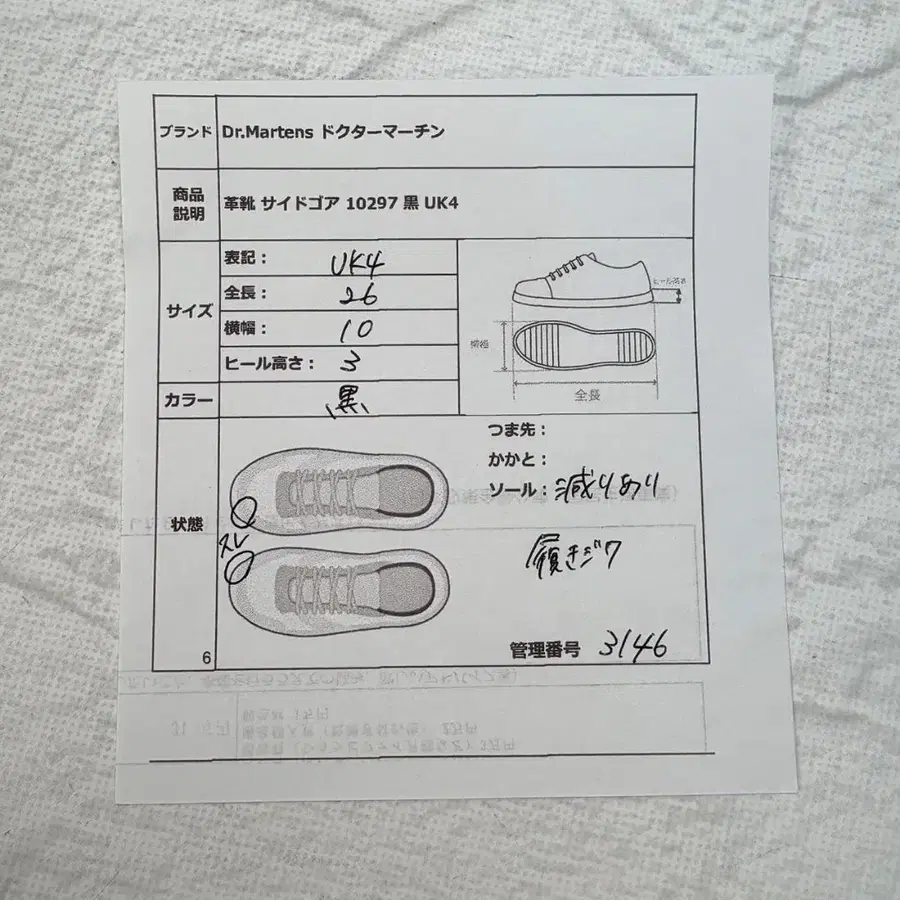 ブランド Dr.Martens ドクターマーチン
商品説明 革靴 サイドゴア 10297 黒 UK4
サイズ
表記： UK4
全長： 26
横幅： 10
ヒール高さ： 3
ヒール高さ
横幅
全長
カラー 黒
状態
つま先：
かかと：
ソール：減りあり
スレ
履きジワ
6
管理番号 3146